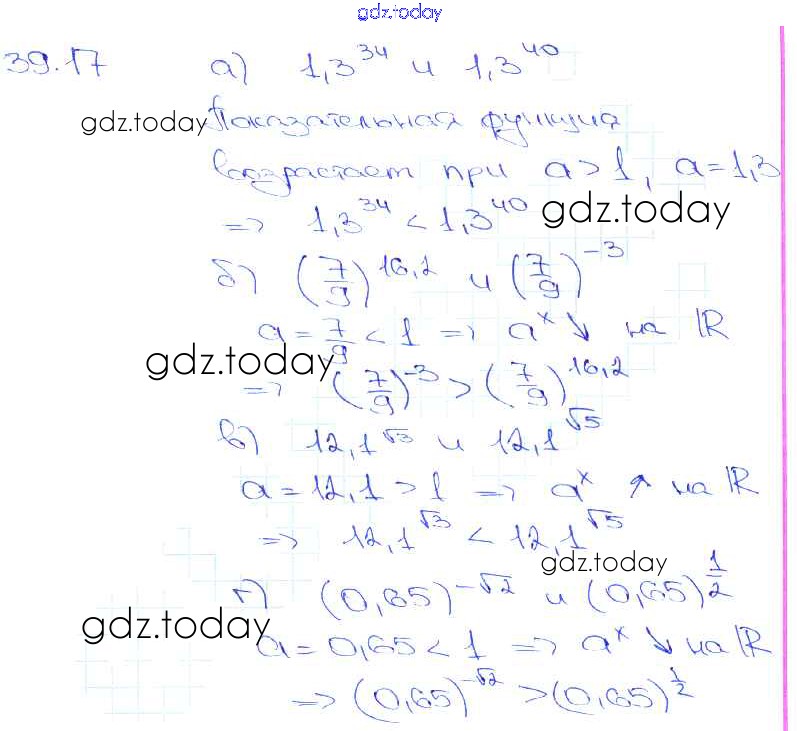 gdz.today
39.17 а) 1,3^34 и 1,3^40
gdz.today Показательная функция
возрастает при a>1, a=1,3
=> 1,3^34 < 1,3^40 gdz.today
б) (7/9)^16,2 и (7/9)^-3
a = 7/9 < 1 => a^x ↘ на ℝ
gdz.today
=> (7/9)^-3 > (7/9)^16,2
в) 12,1^√3 и 12,1^√5
a = 12,1 > 1 => a^x ↗ на ℝ
=> 12,1^√3 < 12,1^√5
gdz.today
г) (0,65)^-√2 и (0,65)^1/2
gdz.today
a = 0,65 < 1 => a^x ↘ на ℝ
=> (0,65)^-√2 > (0,65)^1/2